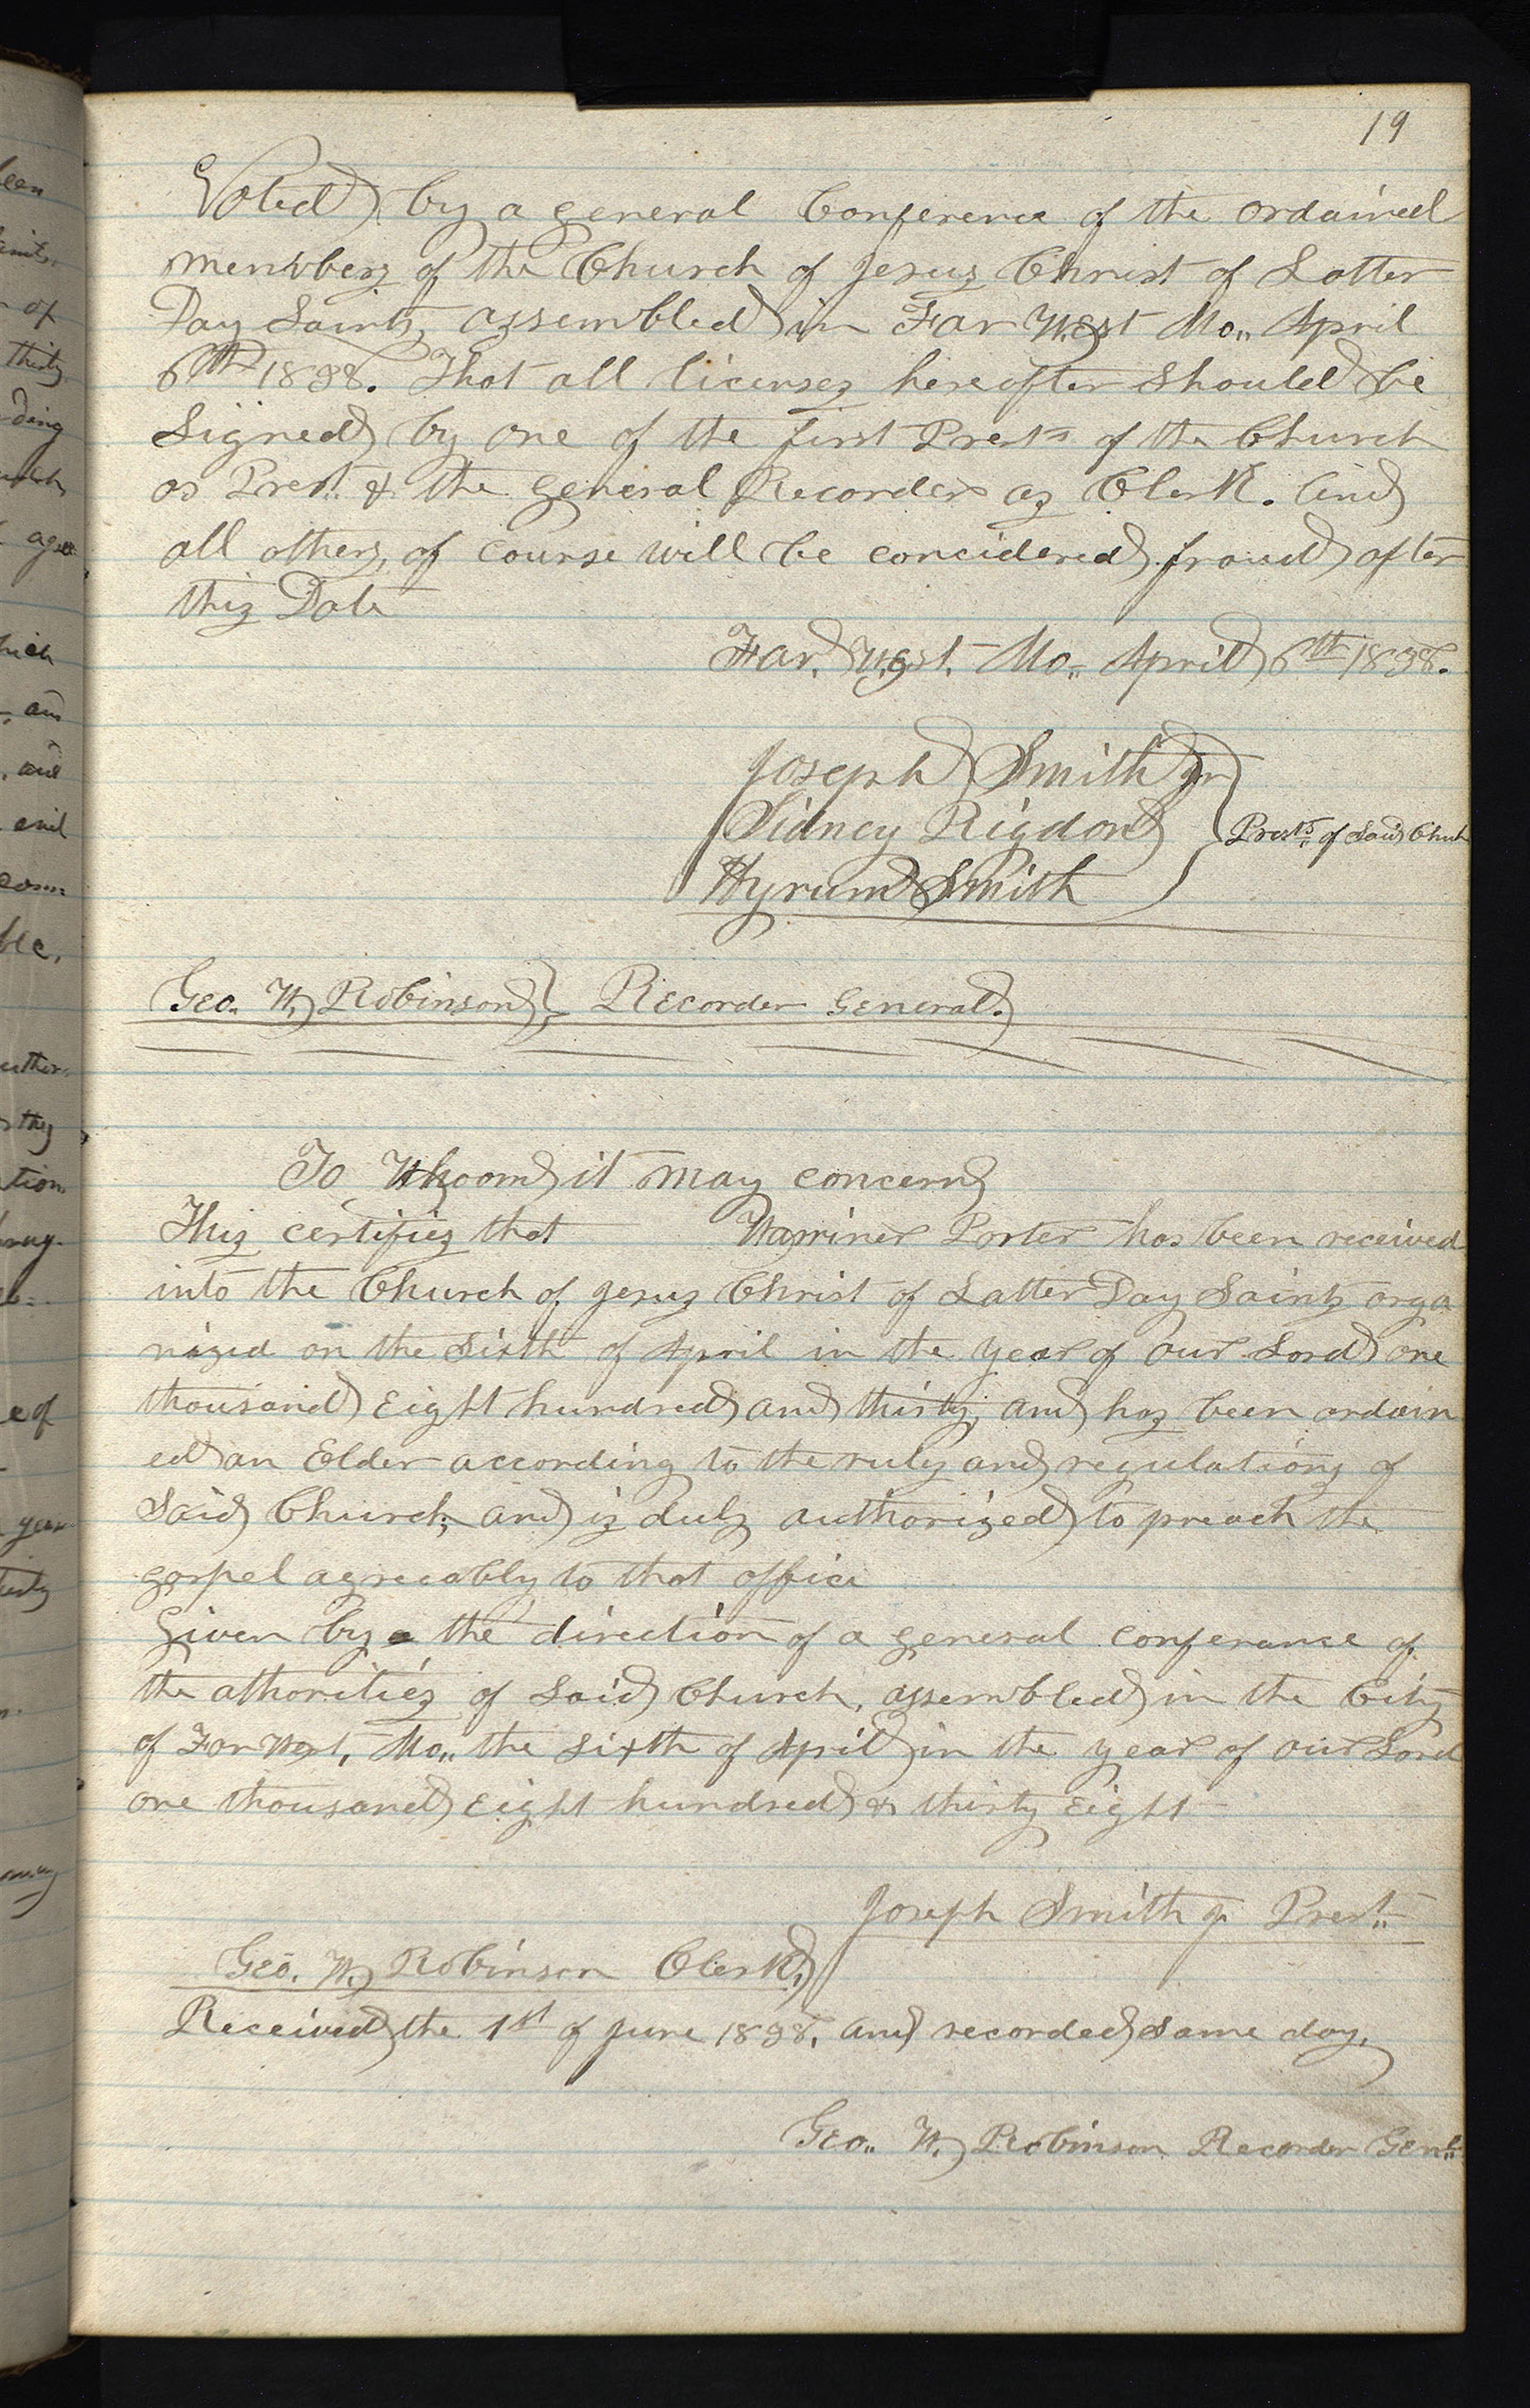 19
Voted by a general Conference of the ordained
members of the Church of Jesus Christ of Latter
Day Saints, assembled in Far West Mo,, April
6th 1838. That all licenses hereafter should be
Signed by one of the first Prests of the Church
as Prest. & the general Recorder as Clerk. And
all others, of course will be concidered fraud after
this Date
Far, West, Mo,, April 6th 1838.
Joseph Smith Jr
Sidney Rigdon } Prests. of Said Chuch
Hyrum Smith
Geo. W. Robinson } Recorder General.
To Whoom it may concern
This certifies that Warriner Porter has been received
into the Church of Jesus Christ of Latter Day Saints orga
nized on the Sixth of April in the year of our Lord one
thousand Eight hundred and thirty, and has been ordain
ed an Elder according to the rules and regulations of
Said Church, and is duly authorized to preach the
gospel agreeably to that office
Given by the direction of a general conferance of
the athorities of Said Church, assembled in the City
of Far West, Mo,, the sixth of April in the year of our Lord
one thousand Eight hundred & thirty Eight
Joseph Smith Jr. Prest.
Geo. W. Robinson Clerk,
Received the 1st of June 1838, and recorded same day,
Geo,, W. Robinson Recorder Genl.
een
of
thirty
ding
hich
and
and
ble,
they
tion
e of
year